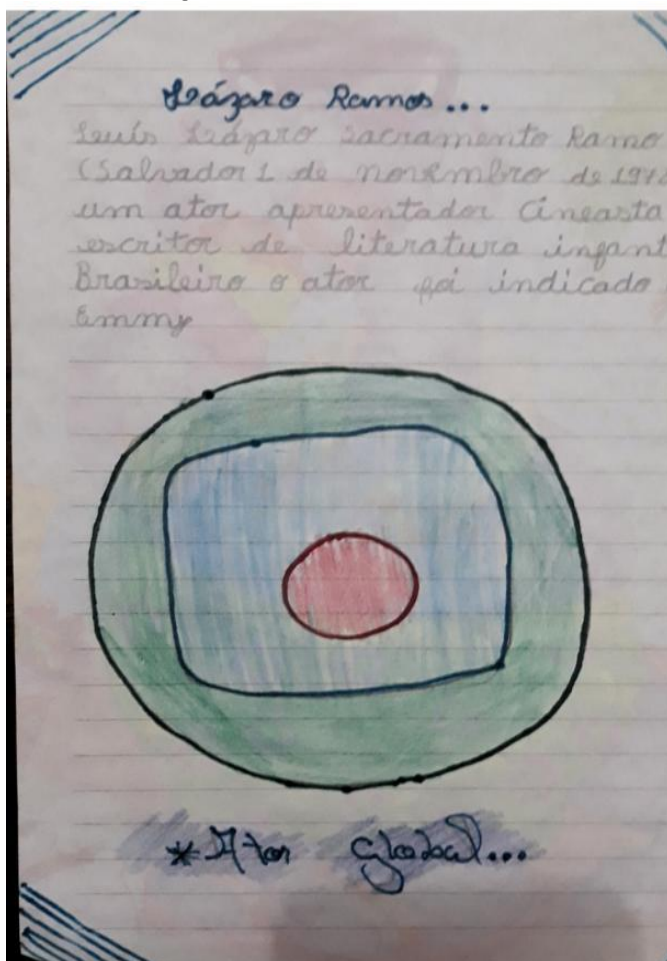 Lázaro Ramos...
Luís Lázaro Sacramento Ramo
(Salvador 1 de novembro de 1978
um ator apresentador Cineasta
escritor de literatura infant
Brasileiro o ator foi indicado
Emmy
*Ator Global...